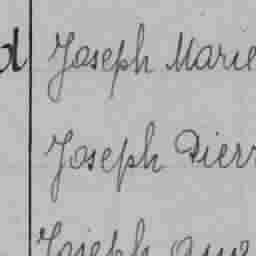 d Joseph Marie
Joseph Pierr
Joseph Aug